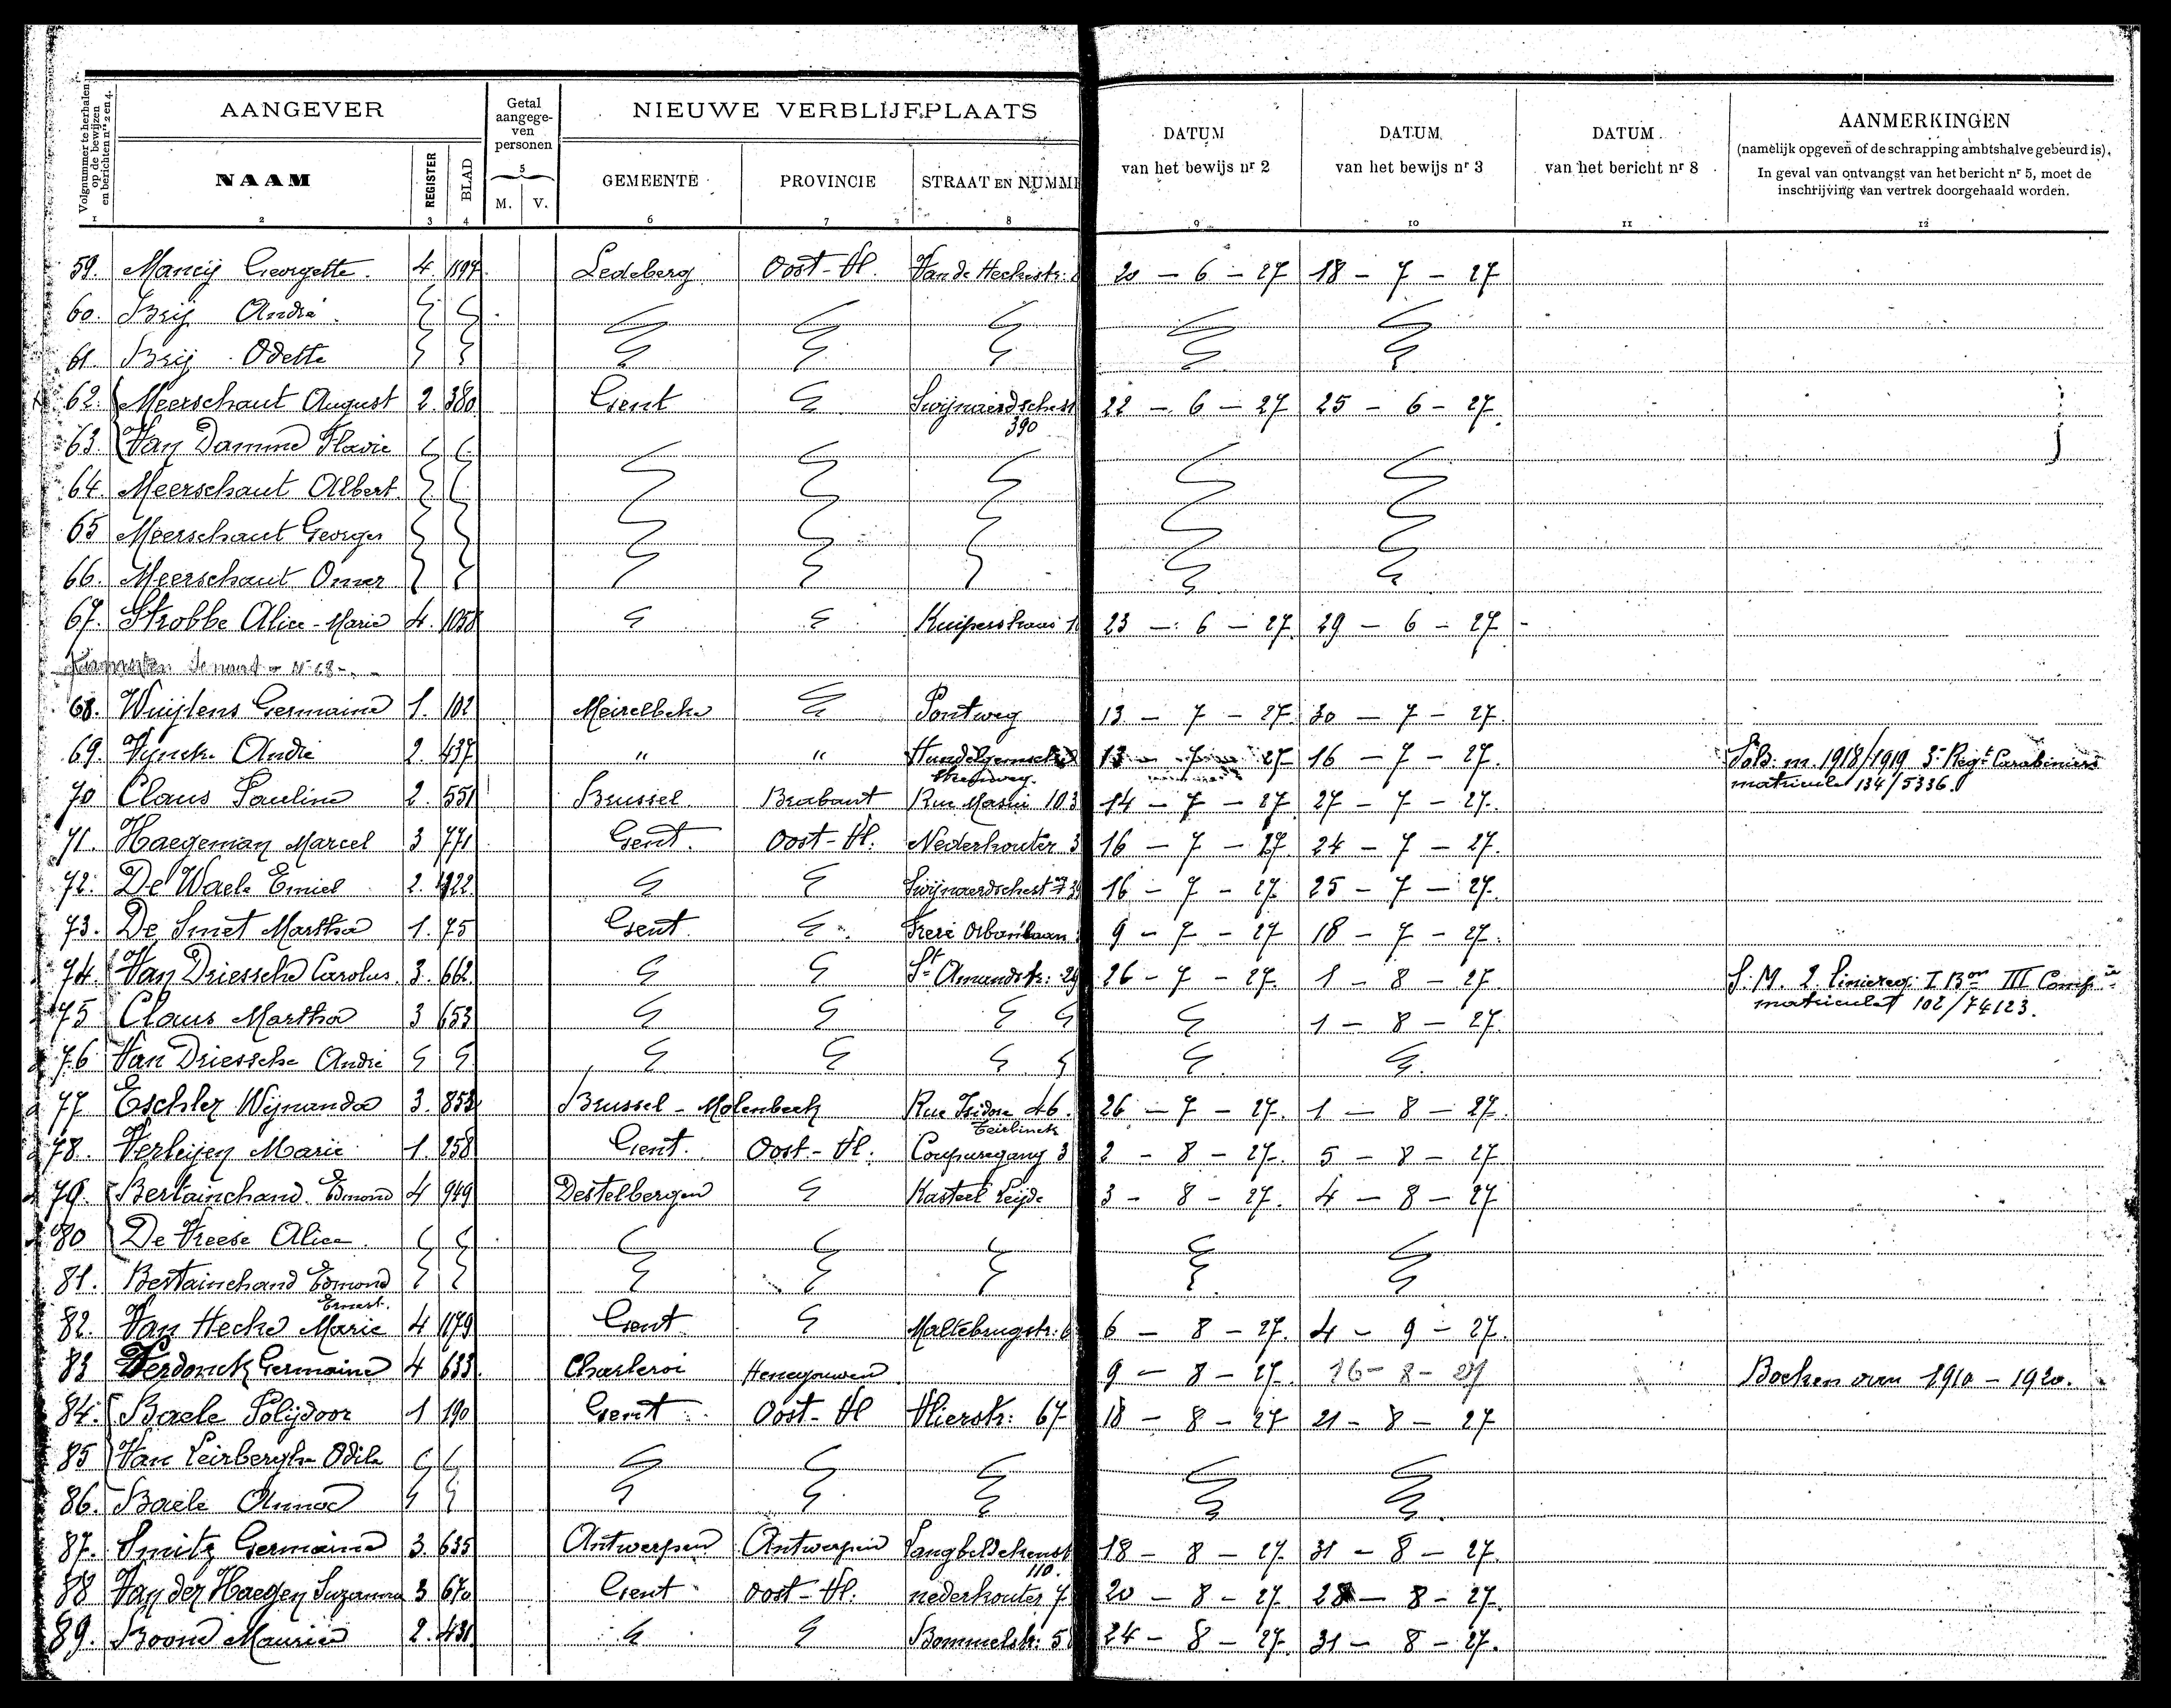 Volgnummer te herhalen op de bewijzen en berichten nrs 2 en 4.
AANGEVER
Getal aangegeven personen
NIEUWE VERBLIJFPLAATS
DATUM van het bewijs nr 2
DATUM van het bewijs nr 3
DATUM van het bericht nr 8
AANMERKINGEN
(namelijk opgeven of de schrapping ambtshalve gebeurd is).
In geval van ontvangst van het bericht nr 5, moet de
inschrijving van vertrek doorgehaald worden.
NAAM REGISTER BLAD M. V. GEMEENTE PROVINCIE STRAAT EN NUMME
1 2 3 4 5 6 7 8 9 10 11 12
59. Mancij Georgette. 4. Ledeberg Oost-Vl. Van de Heckestr: 20 - 6 - 27 18 - 7 - 27
60. Brij André
61. Brij Odette
62. Meerschaut August 2. 380 Gent Swijnaerdschest 22 - 6 - 27 25 - 6 - 27.
390
63. Van Damme Flavie
64 Meerschaut Albert
65 Meerschaut Georges
66. Meerschaut Omer
67. Strobbe Alice-Marie 4. 1058 23 - 6 - 27. 29 - 6 - 27
N° 68
68. Wuijtens Germaine 1. 102 Meirelbeke Pontweg 13 - 7 - 27. 30 - 7 - 27.
69. Vynck André 2. 437 " " 13 - 7 - 27 16 - 7 - 27. Sold. m. 1918/1919 3e Regt Carabiniers
steenweg. matricule 134/5336.
70 Claus Pauline 2. 551 Brussel Brabant Rue Masui 103 14 - 7 - 27 27 - 7 - 27.
71. Haegeman Marcel 3 771 Gent. Oost-Vl. Nederkouter 3 16 - 7 - 27. 24 - 7 - 27.
72. De Waele Emiel 2. Swijnaerdschest 16 - 7 - 27 25 - 7 - 27.
73. De Smet Martha 1. 75 Gent. Frere Orbanlaan 9 - 7 - 27 18 - 7 - 27.
74. Van Driessche Carolus. 3. 662 St Amandstr: 29 26 - 7 - 27. 1 - 8 - 27 S. M. 2. Liniereg. I Bon III Compie
matricule 102/74123.
75 Claus Martha 3 653 1 - 8 - 27.
76 Van Driessche André
77 Eschler Wijnanda 3. 853 Brussel - Molenbeek Rue Isidore 46. 26 - 7 - 27. 1 - 8 - 27.
Teirlinck
78. Verleijen Marie 1. 258 Gent. Oost-Vl. Coupuregang 3 2 - 8 - 27. 5 - 8 - 27
79. Bertainchand Edmond 4 949 Destelbergen Kasteel Leijde 3 - 8 - 27. 4 - 8 - 27
80 De Vreese Alice.
81. Bertainchand Edmond
Ernest.
82. Van Hecke Marie 4 1179 Gent Maltebrugstr: 6 6 - 8 - 27. 4 - 9 - 27.
83 Verdonck Germaine 4 633. Charleroi Henegouwen 9 - 8 - 27. 16 - 8 - 27 Boeken over 1910 - 1920.
84. Baele Polijdoor 1 190 Gent Oost-Vl Vlierstr: 67 18 - 8 - 27 21 - 8 - 27
85 Van Leirberghe Odile
86. Baele Anna
87. Smitz Germaine 3. 635 Antwerpen Antwerpen 18 - 8 - 27. 31 - 8 - 27.
110.
88 Van der Haegen Suzanna 3 670 Gent Oost-Vl. nederkouter 7 20 - 8 - 27 28 - 8 - 27.
89. Boone Maurice 2. 431 Bommelstr: 5 24 - 8 - 27. 31 - 8 - 27.